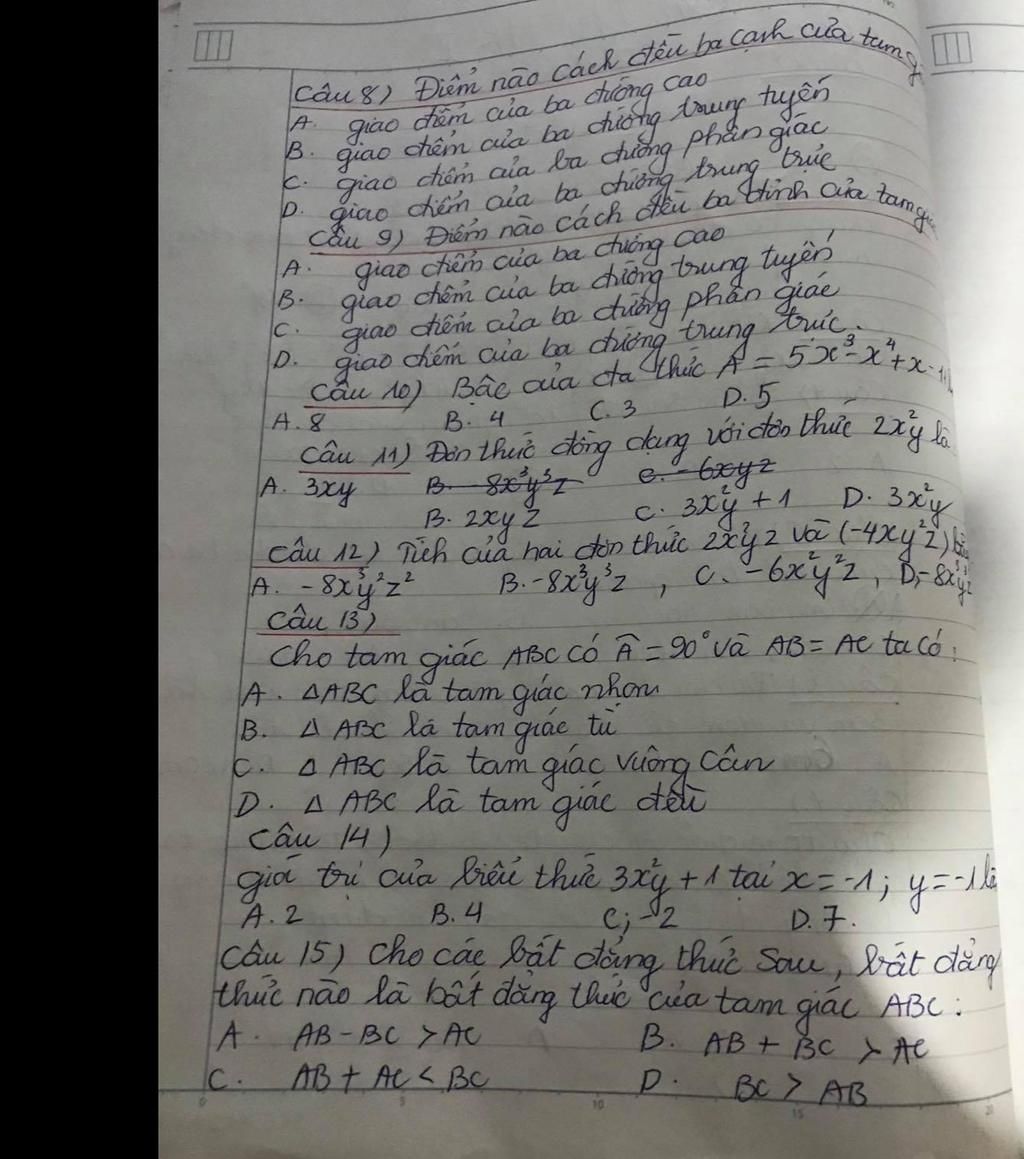 Câu 8) Điểm nào cách đều ba cạnh của tam g
A. giao điểm của ba đường cao
B. giao điểm của ba đường trung tuyến
C. giao điểm của ba đường phân giác
D. giao điểm của ba đường trung trực
Câu 9) Điểm nào cách đều ba đỉnh của tam gi
A. giao điểm của ba đường cao
B. giao điểm của ba đường trung tuyến
C. giao điểm của ba đường phân giác
D. giao điểm của ba đường trung trực.
Câu 10) Bậc của đa thức A = 5x³ - x⁴ + x - 1
A. 8 B. 4 C. 3 D. 5
Câu 11) Đơn thức đồng dạng với đơn thức 2x²y là
A. 3xy B. -8x³y³z C. -6xyz
B. 2xyz C. 3x²y + 1 D. 3x²y
Câu 12) Tích của hai đơn thức 2x²yz và (-4xy²z)
A. -8x³y²z² B. -8x³y³z , C. -6x²y²z , D. -8x³y³z
Câu 13)
Cho tam giác ABC có Â = 90° và AB = AC ta có:
A. ΔABC là tam giác nhọn
B. Δ ABC là tam giác tù
C. Δ ABC là tam giác vuông cân
D. Δ ABC là tam giác đều
Câu 14)
giá trị của biểu thức 3x²y + 1 tại x = -1; y = -1 là
A. 2 B. 4 C; -2 D. 7.
Câu 15) Cho các bất đẳng thức sau, bất đẳng
thức nào là bất đẳng thức của tam giác ABC:
A. AB - BC > AC B. AB + BC > AC
C. AB + AC < BC D. BC > AB
0 5 10 15 20